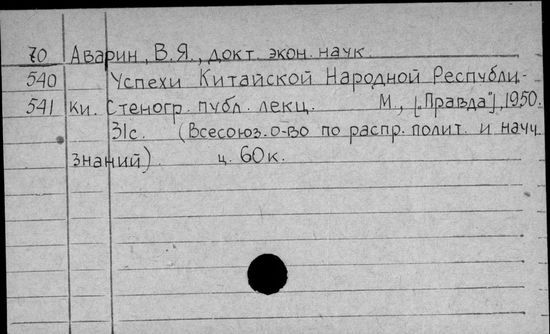 70 Аварин, В.Я., докт. экон. наук.
540 Успехи Китайской Народной Республи-
541 ки. Стеногр. публ. лекц. М., ["Правда"], 1950.
31с. (Всесоюз. о-во по распр. полит. и науч.
знаний). ц. 60к.